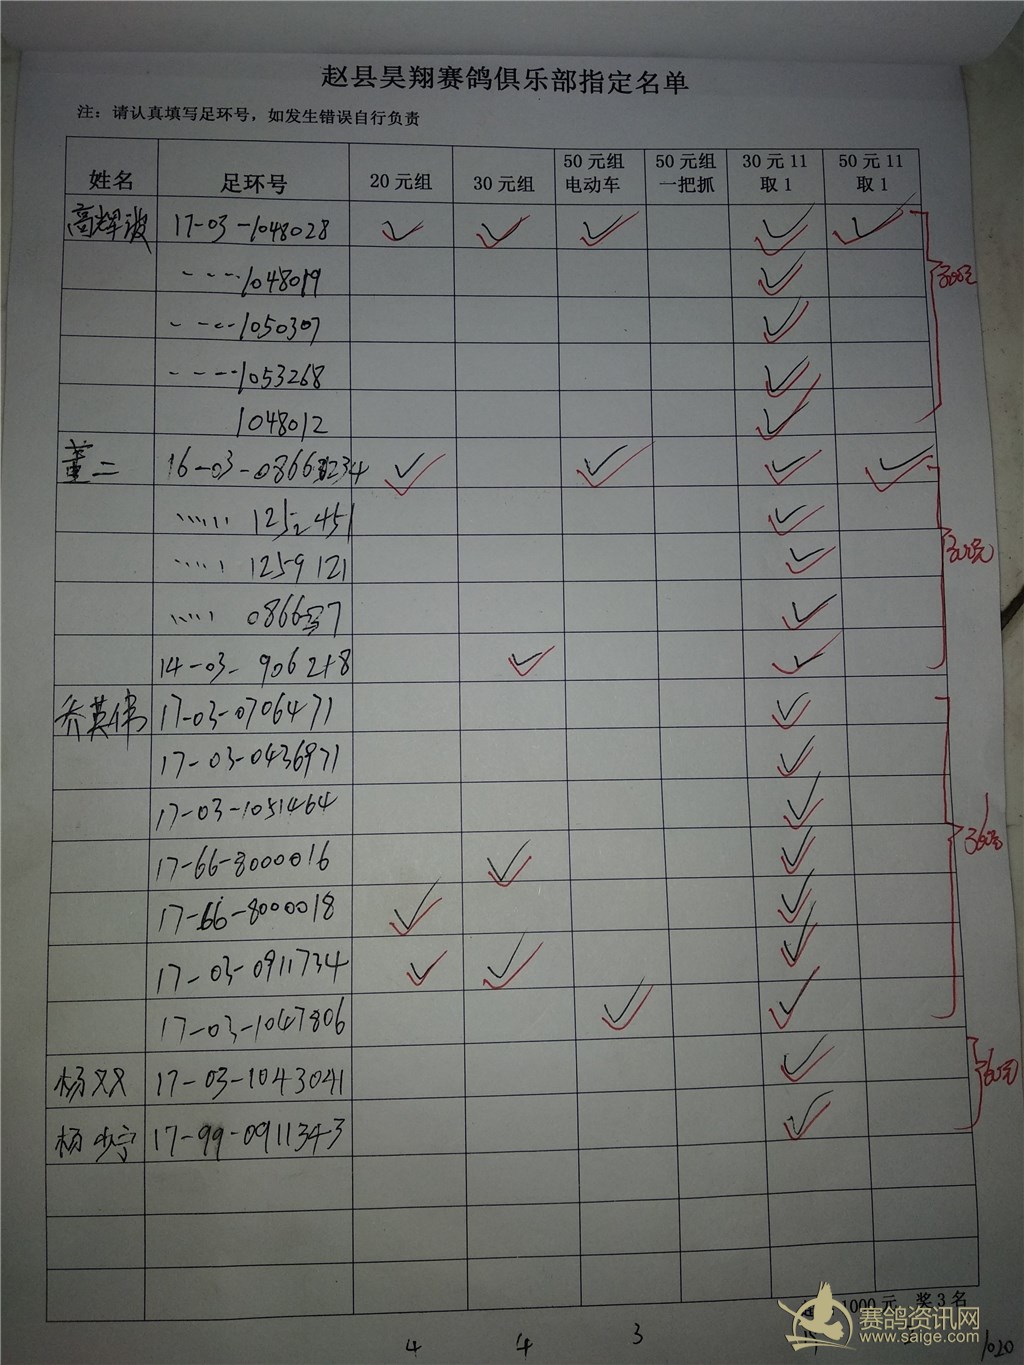 赵县昊翔赛鸽俱乐部指定名单
注：请认真填写足环号，如发生错误自行负责
姓名 足环号 20元组 30元组 50元组电动车 50元组一把抓 30元11取1 50元11取1
高辉波 17-03-1048028 ✓ ✓ ✓ ✓ ✓
1048019 ✓
1050307 ✓
1053268 ✓
1048012 ✓
300元
董二 16-03- ✓ ✓ ✓ ✓
451 ✓
1259121 ✓
0866 ✓
14-03- ✓ ✓
300元
乔英伟 17-03-0706471 ✓
17-03-0436971 ✓
17-03-1051464 ✓
17-66-8000016 ✓ ✓
17-66-8000018 ✓ ✓
17-03-0911734 ✓ ✓ ✓
17-03-1047806 ✓ ✓
360元
杨双 17-03-1043041 ✓
杨少宁 17-99-0911343 ✓
60元
1000元，奖3名
4 4 3 1020
赛鸽资讯网
www.saige.com